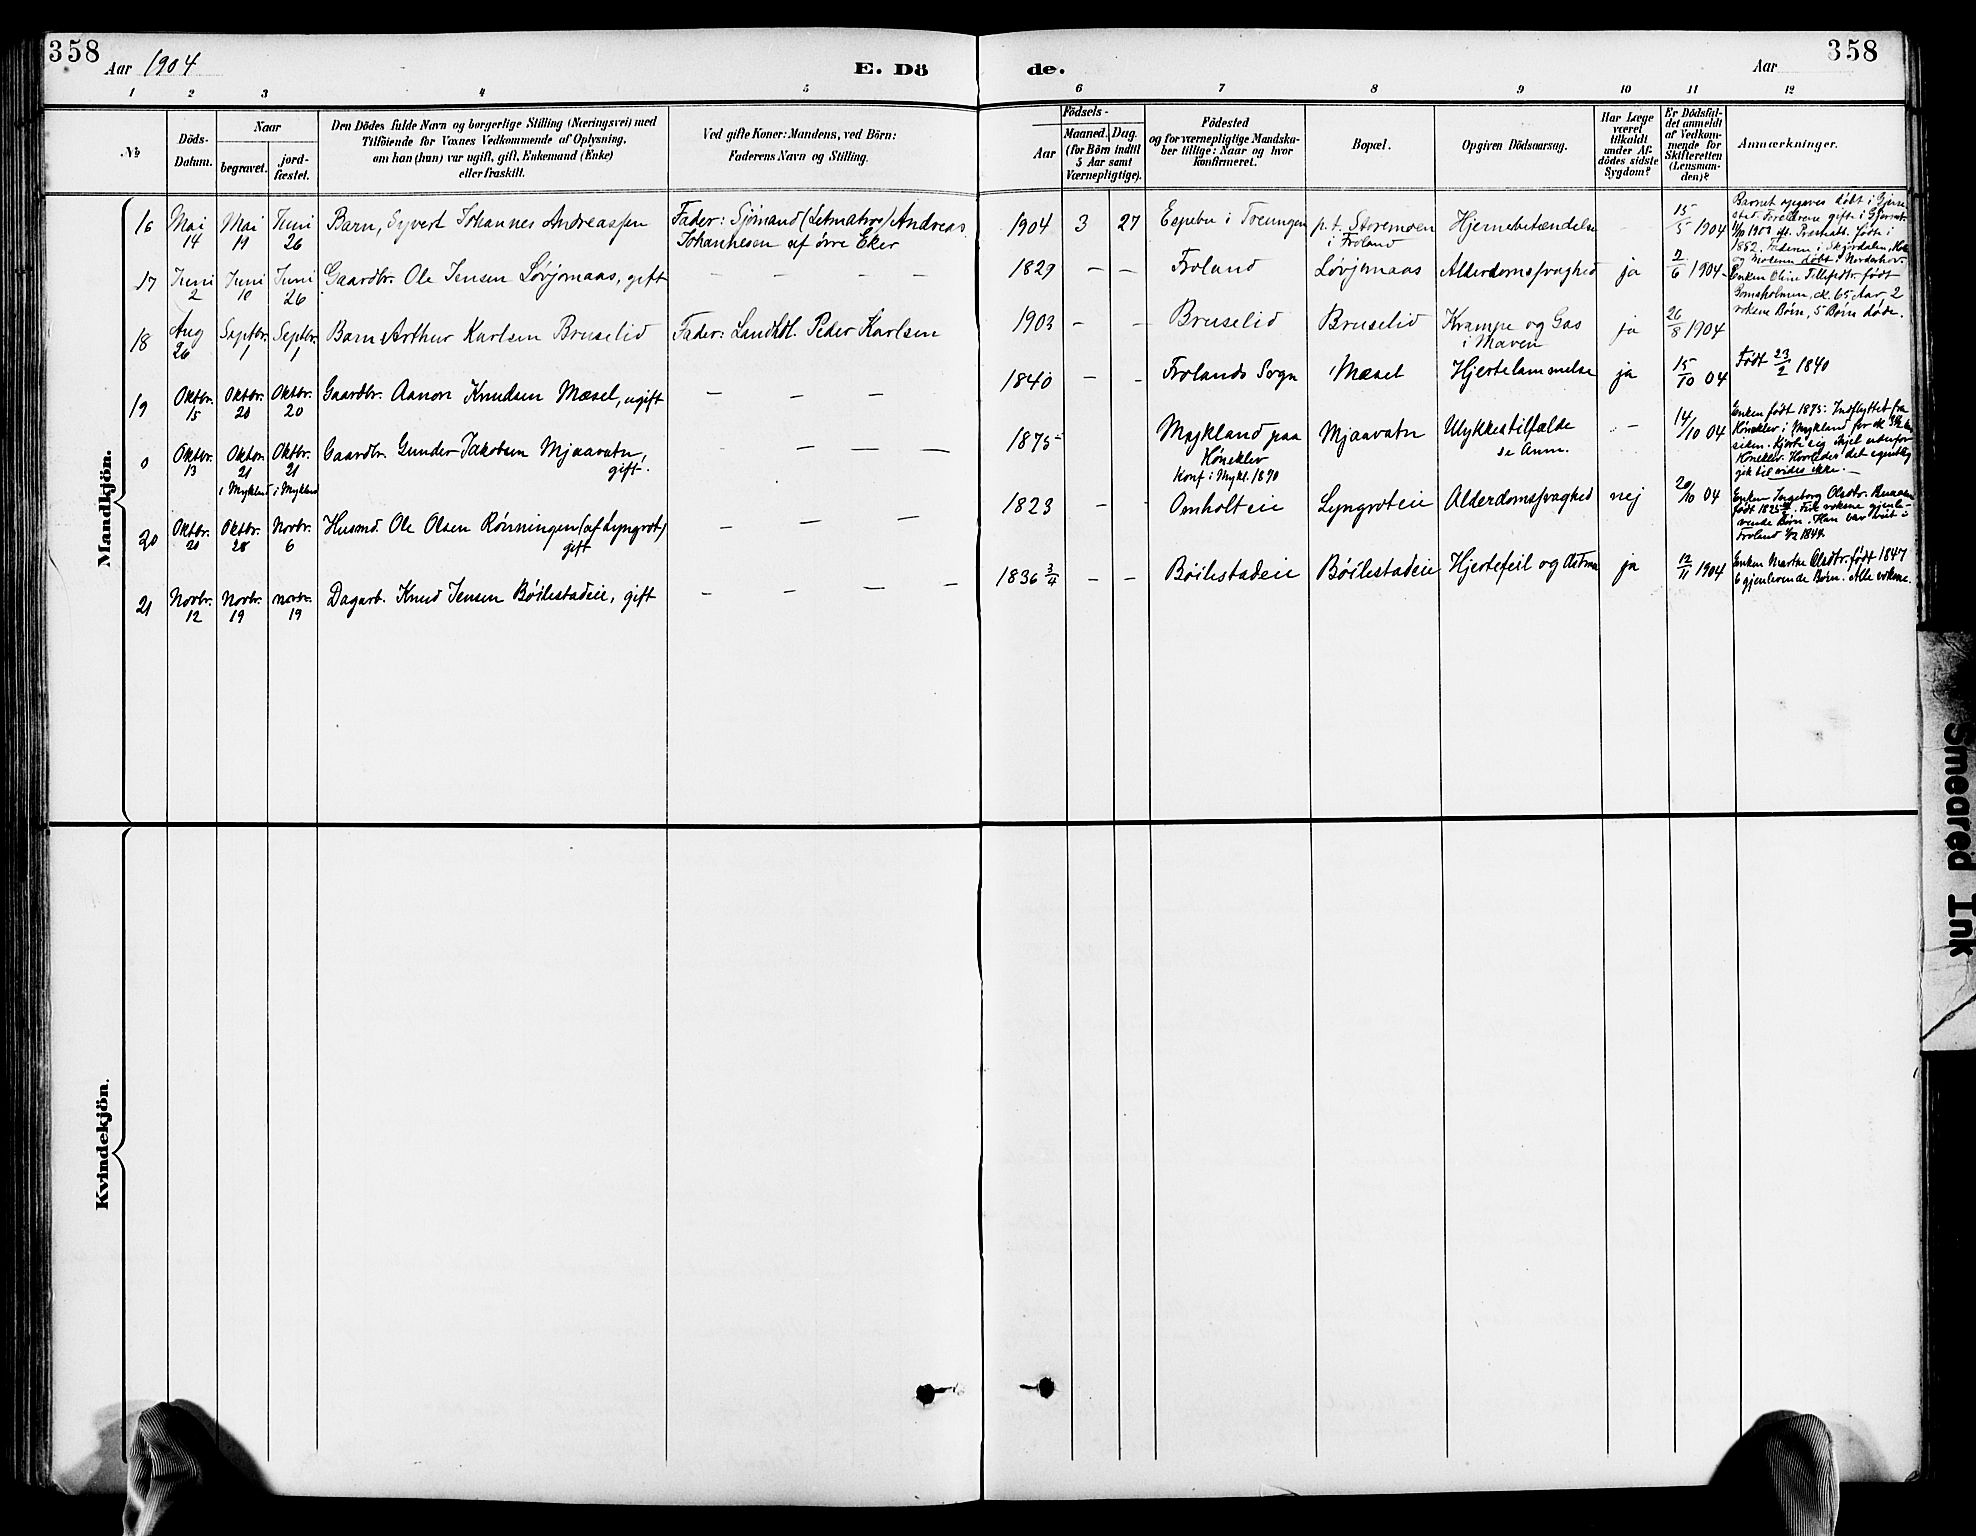 358
Aar 1904
E. Dö
de.
Aar
358
1 2 3 4 5 6 7 8 9 10 11 12
№
Döds-
Datum.
Naar
begravet.
jord-
fæstet.
Den Dödes fulde Navn og borgerlige Stilling (Næringsvei) med
Tilföiende for Voxnes Vedkommende af Oplysning,
om han (hun) var ugift, gift, Enkemand (Enke)
eller fraskilt.
Ved gifte Koner: Mandens, ved Börn:
Faderens Navn og Stilling.
Födsels-
Aar
Maaned. Dag.
(for Börn indtil
5 Aar samt
Værnepligtige).
Födested
og for værnepligtige Mandska-
ber tillige: Naar og hvor
konfirmeret.
Bopæl.
Opgiven Dödsaarsag.
Har Læge
været
tilkaldt
under Af-
dödes sidste
Sygdom?
Er Dödsfal-
det anmeldt
af Vedkom-
mende for
Skifteretten
(Lensman-
den)?
Anmærkninger.
Mandkjön.
16 Mai 14 Mai 19 Juni 26 Barn, Syvert Johannes Andreassen Fader: Sjömand Andreas
Johannesen af övre Eker
1904 3 27 Espebu i Treungen p.t. Storemoen i Froland Hjernebetændelse – 15/5 1904
Barnet opgives döbt i Gjerre-
stad. Forældrene gift i
1882. Faderen i Skjördalen,
og Moderen döbt i Norderhov.
17 Juni 2 Juni 10 Juni 26 Gaardbr. Ole Jensen Lövjomaas, gift – – – –
1829 – – Froland Lövjomaas Alderdomssvaghed ja 2/6 1904
Enken Oline født
65 Aar, 2
voksne Börn, 5 Börn døde.
18 Aug 26 Septbr. 1 Septbr. 1 Barn Arthur Karlsen Bruselid Fader: Landhdl. Peder Karlsen
1903 – – Bruselid Bruselid Krampe og Gas i Maven ja 26/8 1904
19 Oktbr. 15 Oktbr. 20 Oktbr. 20 Gaardbr. Aanon Knudsen Mæsel, ugift – – –
1840 – – Frolands Sogn Mæsel Hjertelammelse ja 15/10 04 Født 23/2 1840
0 Oktbr. 13 Oktbr. 21 i Mykland Oktbr. 21 i Mykland Gaardbr. Gunder Jakobsen Mjaavatn, gift. – – –
1875 Mykland paa Høneklev Konf i Mykl. 1890 Mjaavatn Ulykkestilfælde se Anm. – 14/10 04
Enken født 1875. Indflyttet fra
Høneklev i Mykland for
siden. Kjørte sig ihjel udenfor
Høneklev. Hvorledes det egentlig
gik til vides ikke.
20 Oktbr. 20 Oktbr. 28 Novbr. 6 Husmd. Ole Olsen Rönningen (af Lyngrot) gift – – –
1823 – – Omholteie Lyngroteie Alderdomssvaghed nej 20/10 04
Enken Ingeborg Olsdtr.
født 1825. voksne gjenle-
vende Börn. Han var viet i
Froland 1844.
21 Novbr. 12 Novbr. 19 Novbr. 19 Dagarb. Knud Jensen Böilestadeie, gift – – – –
1836 3/4 – – Böilestadeie Böilestadeie Hjertefeil og Astma ja 12/11 1904
Enken Marthe Olsdtr. født 1847
6 gjenlevende Börn. Alle voksne.
Kvindekjön.
Smeared Ink